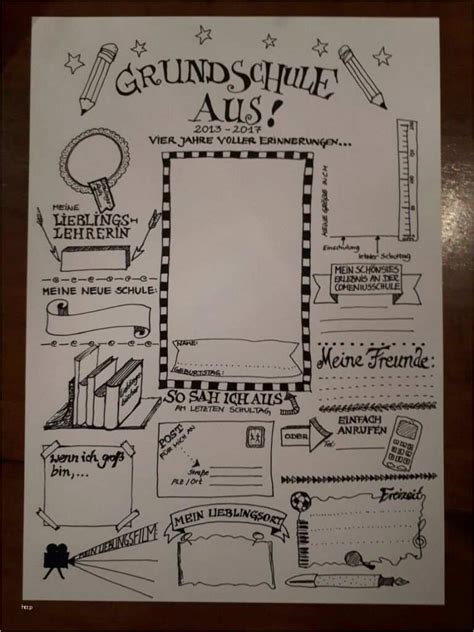 GRUNDSCHULE
AUS!
2013 - 2017
VIER JAHRE VOLLER ERINNERUNGEN...
MEINE
LIEBLINGS-
LEHRERIN
MEINE NEUE SCHULE:
Lieblings-
bücher
wenn ich groß
bin,...
MEIN LIEBLINGSFILM
NAME:
GEBURTSTAG:
SO SAH ICH AUS
AM LETZTEN SCHULTAG
POST
FÜR MICH AN
Straße
PLZ / Ort
MEIN LIEBLINGSORT
MEINE GRÖßE IN CM
Einschulung
letzter Schultag
MEIN SCHÖNSTES
ERLEBNIS AN DER
COMENIUSSCHULE
Meine Freunde:
ODER
EINFACH
ANRUFEN
Tel:
Freizeit
http